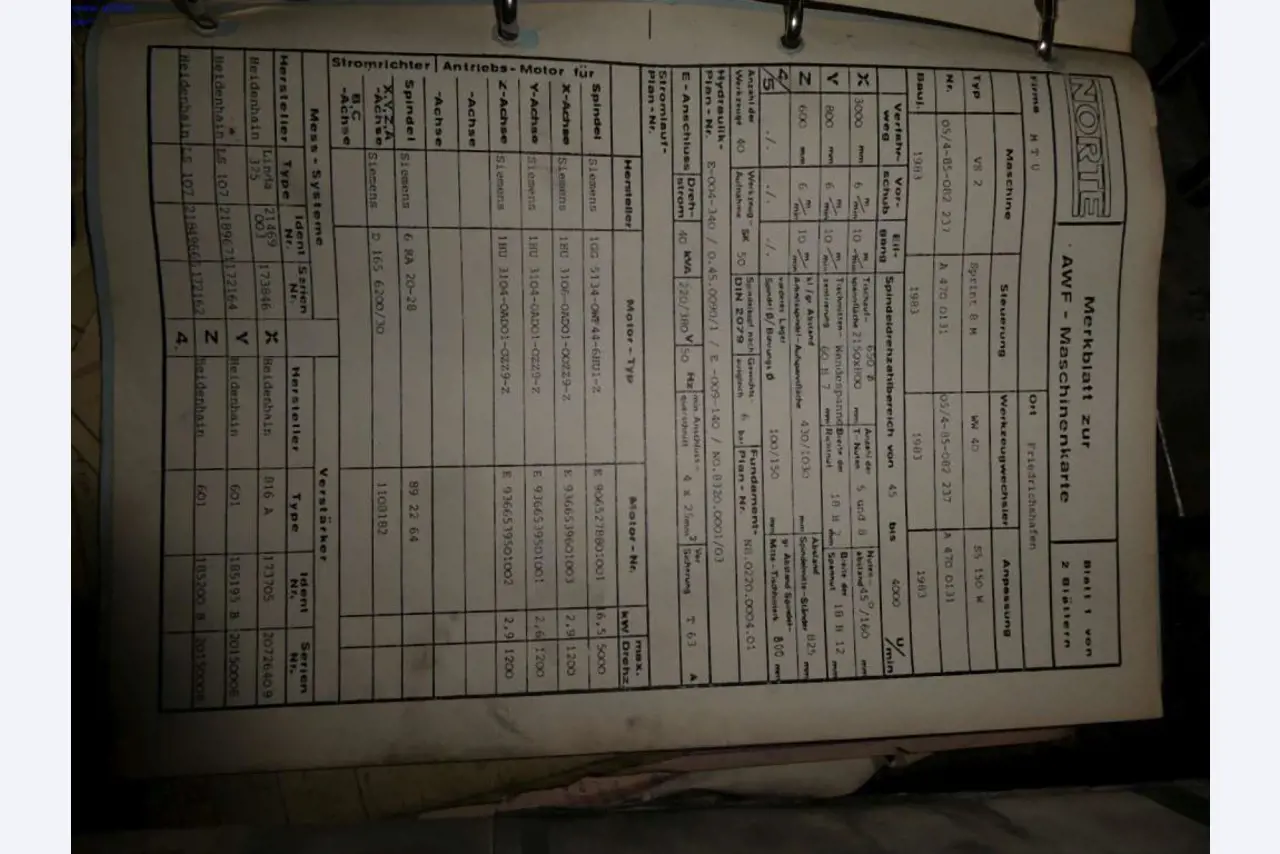 NORTE
Merkblatt zur
AWF - Maschinenkarte
Blatt 1 von
2 Blättern
Firma MTU
Ort Friedrichshafen
Maschine Steuerung Werkzeugwechsler Anpassung
Typ VS 2 Sprint 8 M WW 40 SS 150 W
Nr. 05/4-85-082 237 A 470 0131 05/4-85-082 237 A 470 0131
Bauj. 1983 1983 1983 1983
Verfahr-weg Vor-schub Eil-gang Spindeldrehzahlbereich von 45 bis 4000 U/min
X 3000 mm 6 m/min 10 m/min Tischauf-spannfläche 650 Ø 2150x800 mm Anzahl der T-Nuten 5 und 8 Nuten-abstand 45°/160 mm
Y 800 mm 6 m/min 10 m/min Tischmitten-zentrierung 60 H 7 mm Breite der Richtnut 18 H 7 mm Breite der Spannut 18 H 12 mm
Z 600 mm 6 m/min 10 m/min kl/gr Abstand Arbeitsspindel-Aufspannfläche 430/1030 mm Abstand Spindelmitte-Ständer 825 mm
4/5 ./. ./. ./. vorderes Lager Spindel Ø/Bohrungs Ø 100/150 mm gr Abstand Spindel-Mitte-Tischwerk 800 mm
Anzahl der Werkzeuge 40 Werkzeug-Aufnahme SK 50 Spindelkopf nach DIN 2079 Gewichts-ausgleich 6 bar Fundament-Plan-Nr. N8.0220.0004.01
Hydraulik-Plan-Nr. E-004-340 / 0.45.0090/1 / E-009-140 / N0.8320.0001/03
E-Anschluss Dreh-strom 40 kVA 220/380 V 50 Hz min Anschluss-querschnitt 4 x 25mm² Vor Sicherung T 63 A
Stromlauf-Plan-Nr.
Hersteller Motor-Typ Motor-Nr. kW max. Drehz.
Antriebs-Motor für
Spindel Siemens E 9065278801001 16,5 5000
X-Achse Siemens E 9366539601003 2,9 1200
Y-Achse Siemens 1HU 3104-0AD01-0ZZ9-Z E 9366539501001 2,6 1200
Z-Achse Siemens 1HU 3104-0AD01-0ZZ9-Z E 9366539501002 2,9 1200
-Achse
-Achse
Stromrichter
Spindel Siemens 6 RA 20-28 89 22 64
X,Y,Z,A -Achse Siemens D 165 6200/30 1108182
B,C -Achse
Mess-Systeme Verstärker
Hersteller Type Ident Nr. Serien Nr. Hersteller Type Ident Nr. Serien Nr.
Heidenhain Linda 325 21469 003 173846 X Heidenhain 816 A 173705 2072640 9
Heidenhain LS 107 21896711 172164 Y Heidenhain 601 185195 B 2015000E
Heidenhain LS 107 172162 Z Heidenhain 601 185200 B
4.